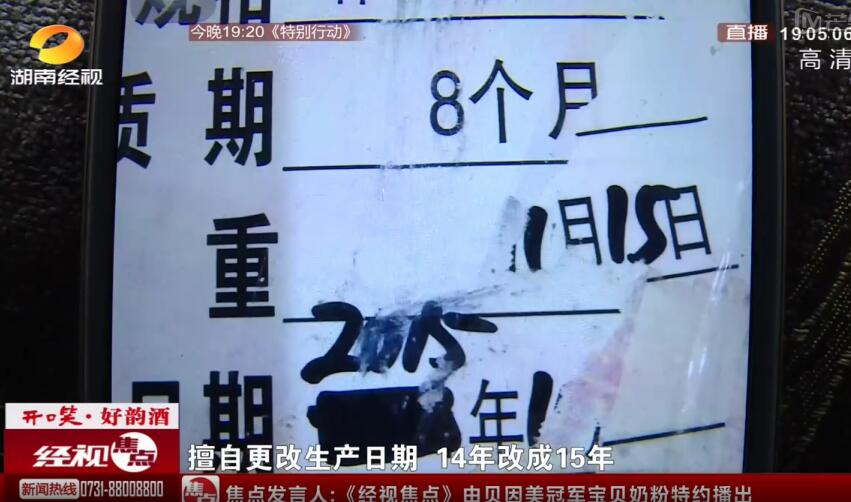 规格
今晚19:20《特别行动》
直播
19:05:06
高清
湖南经视
质 期 8个月
重
1月15日
2015
期 年1
开口笑·好韵酒
经视焦点
擅自更改生产日期 14年改成15年
新闻热线 0731-88008800
焦点 焦点发言人:《经视焦点》由贝因美冠军宝贝奶粉特约播出